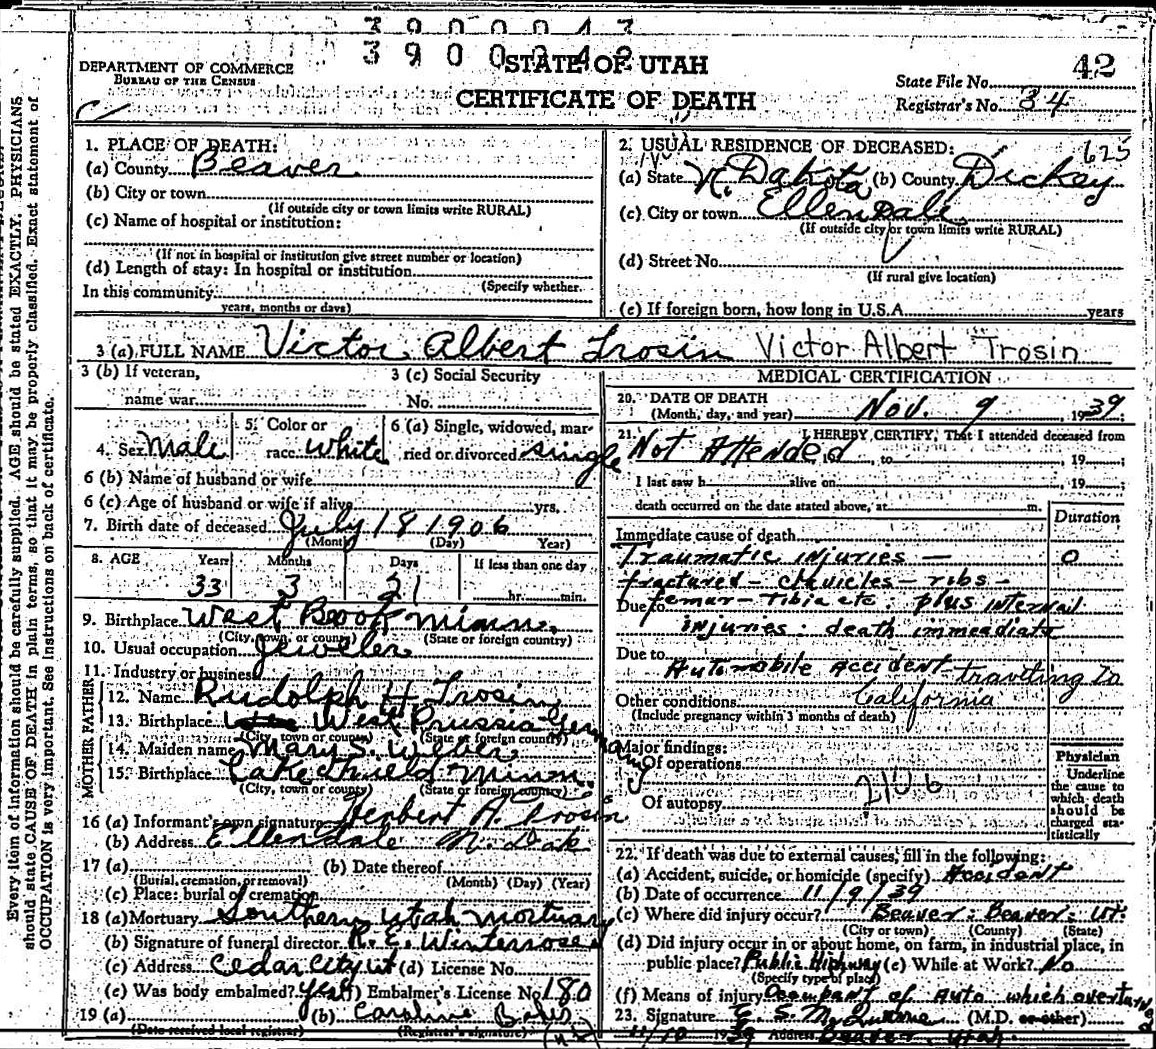 3 9 0 0 0 4 3
3 9 0 0 0 4 2
STATE OF UTAH
42
DEPARTMENT OF COMMERCE
BUREAU OF THE CENSUS
CERTIFICATE OF DEATH
State File No.
Registrar's No. 34
1. PLACE OF DEATH:
(a) County Beaver
(b) City or town
(If outside city or town limits write RURAL)
(c) Name of hospital or institution:
(If not in hospital or institution give street number or location)
(d) Length of stay: In hospital or institution
(Specify whether
In this community
years, months or days)
2. USUAL RESIDENCE OF DECEASED: 625
(a) State N. Dakota (b) County Dickey
(c) City or town Ellendale
(If outside city or town limits write RURAL)
(d) Street No.
(If rural give location)
(e) If foreign born, how long in U.S.A. years
3 (a) FULL NAME Victor Albert Trosin Victor Albert Trosin
3 (b) If veteran,
name war
3 (c) Social Security
No.
4. Sex Male
5. Color or
race White
6 (a) Single, widowed, mar-
ried or divorced single
6 (b) Name of husband or wife
6 (c) Age of husband or wife if alive yrs.
7. Birth date of deceased July 18 1906
(Month) (Day) Year)
8. AGE Years Months Days If less than one day
33 3 21 hr. min.
9. Birthplace West Brook Minn.
(City, town, or county) (State or foreign country)
10. Usual occupation Jeweler
11. Industry or business
FATHER
12. Name Rudolph H Trosin
13. Birthplace West Prussia Germany
(City town or county) (State or foreign country)
MOTHER
14. Maiden name Mary S. Weber
15. Birthplace Lakefield Minn.
(City, town or county) (State or foreign country)
16 (a) Informant's own signature Herbert A. Trosin
(b) Address Ellendale N. Dak
17 (a) (b) Date thereof
(Burial, cremation, or removal) (Month) (Day) (Year)
(c) Place: burial or cremation
18 (a) Mortuary Southern Utah Mortuary
(b) Signature of funeral director R. E. Winterrose
(c) Address Cedar City Ut (d) License No.
(e) Was body embalmed? yes (f) Embalmer's License No. 180
19 (a) (b) Caroline
(Date received local registrar) (Registrar's signature)
MEDICAL CERTIFICATION
20. DATE OF DEATH
(Month, day, and year) Nov. 9 1939
21. I HEREBY CERTIFY, That I attended deceased from
Not Attended, to 19 ;
I last saw h alive on 19 ;
death occurred on the date stated above, at m.
Duration
Immediate cause of death
Traumatic injuries — 0
fractured - clavicles - ribs -
Due to femur - tibia etc. plus internal
injuries: death immediate
Due to
Automobile Accident - traveling to
California
Other conditions
(Include pregnancy within 3 months of death)
Major findings:
Of operations
210b
Of autopsy
Physician
Underline
the cause to
which death
should be
charged sta-
tistically
22. If death was due to external causes, fill in the following:
(a) Accident, suicide, or homicide (specify) Accident
(b) Date of occurrence 11/9/39
(c) Where did injury occur? Beaver: Beaver: Ut.
(City or town) (County) (State)
(d) Did injury occur in or about home, on farm, in industrial place, in
public place? Public Highway (e) While at Work? No
(Specify type of place)
(f) Means of injury Occupant of Auto which overturned
23. Signature (M.D. or other)
11/10 1939 Address Beaver, Utah
Every item of information should be carefully supplied. AGE should be stated EXACTLY. PHYSICIANS
should state CAUSE OF DEATH in plain terms, so that it may be properly classified. Exact statement of
OCCUPATION is very important. See instructions on back of certificate.